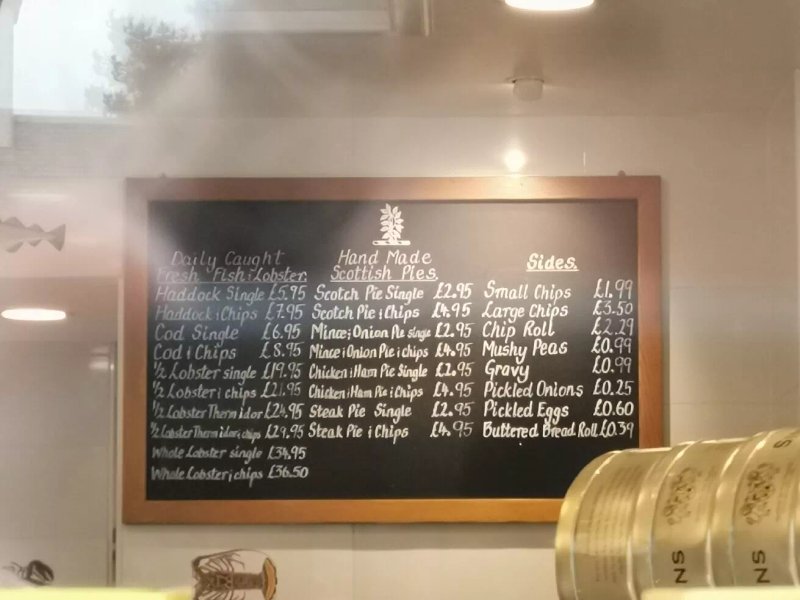 Daily Caught
Fresh Fish & Lobster.
Haddock Single £5.95
Haddock & Chips £7.95
Cod Single £6.95
Cod & Chips £8.95
½ Lobster single £19.95
½ Lobster & chips £21.95
½ Lobster Thermidor £24.95
½ Lobster Thermidor & chips £29.95
Whole Lobster single £34.95
Whole Lobster & chips £36.50
Hand Made
Scottish Pies.
Scotch Pie Single £2.95
Scotch Pie & Chips £4.95
Mince & Onion Pie single £2.95
Mince & Onion Pie & chips £4.95
Chicken & Ham Pie Single £2.95
Chicken & Ham Pie & Chips £4.95
Steak Pie Single £2.95
Steak Pie & Chips £4.95
Sides.
Small Chips £1.99
Large Chips £3.50
Chip Roll £2.29
Mushy Peas £0.99
Gravy £0.99
Pickled Onions £0.25
Pickled Eggs £0.60
Buttered Bread Roll £0.39
NS
NS